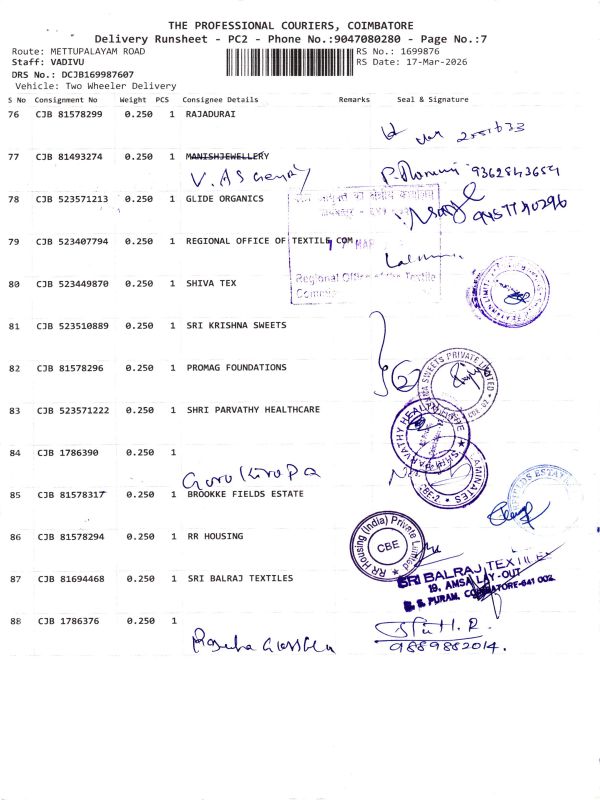 THE PROFESSIONAL COURIERS, COIMBATORE
Delivery Runsheet - PC2 - Phone No.:9047080280 - Page No.:7
Route: METTUPALAYAM ROAD RS No.: 1699876
Staff: VADIVU RS Date: 17-Mar-2026
DRS No.: DCJB169987607
Vehicle: Two Wheeler Delivery
S No Consignment No Weight PCS Consignee Details Remarks Seal & Signature
76 CJB 81578299 0.250 1 RAJADURAI
77 CJB 81493274 0.250 1 MANISHJEWELLERY
9362843654
78 CJB 523571213 0.250 1 GLIDE ORGANICS
79 CJB 523407794 0.250 1 REGIONAL OFFICE OF TEXTILE COM
17 MAR
Regional Office of the Textile
80 CJB 523449870 0.250 1 SHIVA TEX
81 CJB 523510889 0.250 1 SRI KRISHNA SWEETS
82 CJB 81578296 0.250 1 PROMAG FOUNDATIONS
SWEETS PRIVATE LIMITED
83 CJB 523571222 0.250 1 SHRI PARVATHY HEALTHCARE
84 CJB 1786390 0.250 1
Guru Kirupa
85 CJB 81578317 0.250 1 BROOKKE FIELDS ESTATE
86 CJB 81578294 0.250 1 RR HOUSING
RR Housing (India) Private Limited
CBE
87 CJB 81694468 0.250 1 SRI BALRAJ TEXTILES
SRI BALRAJ TEXTILES
19, AMSA LAY-OUT
R. S. PURAM, COIMBATORE-641 002.
88 CJB 1786376 0.250 1
9889882014.